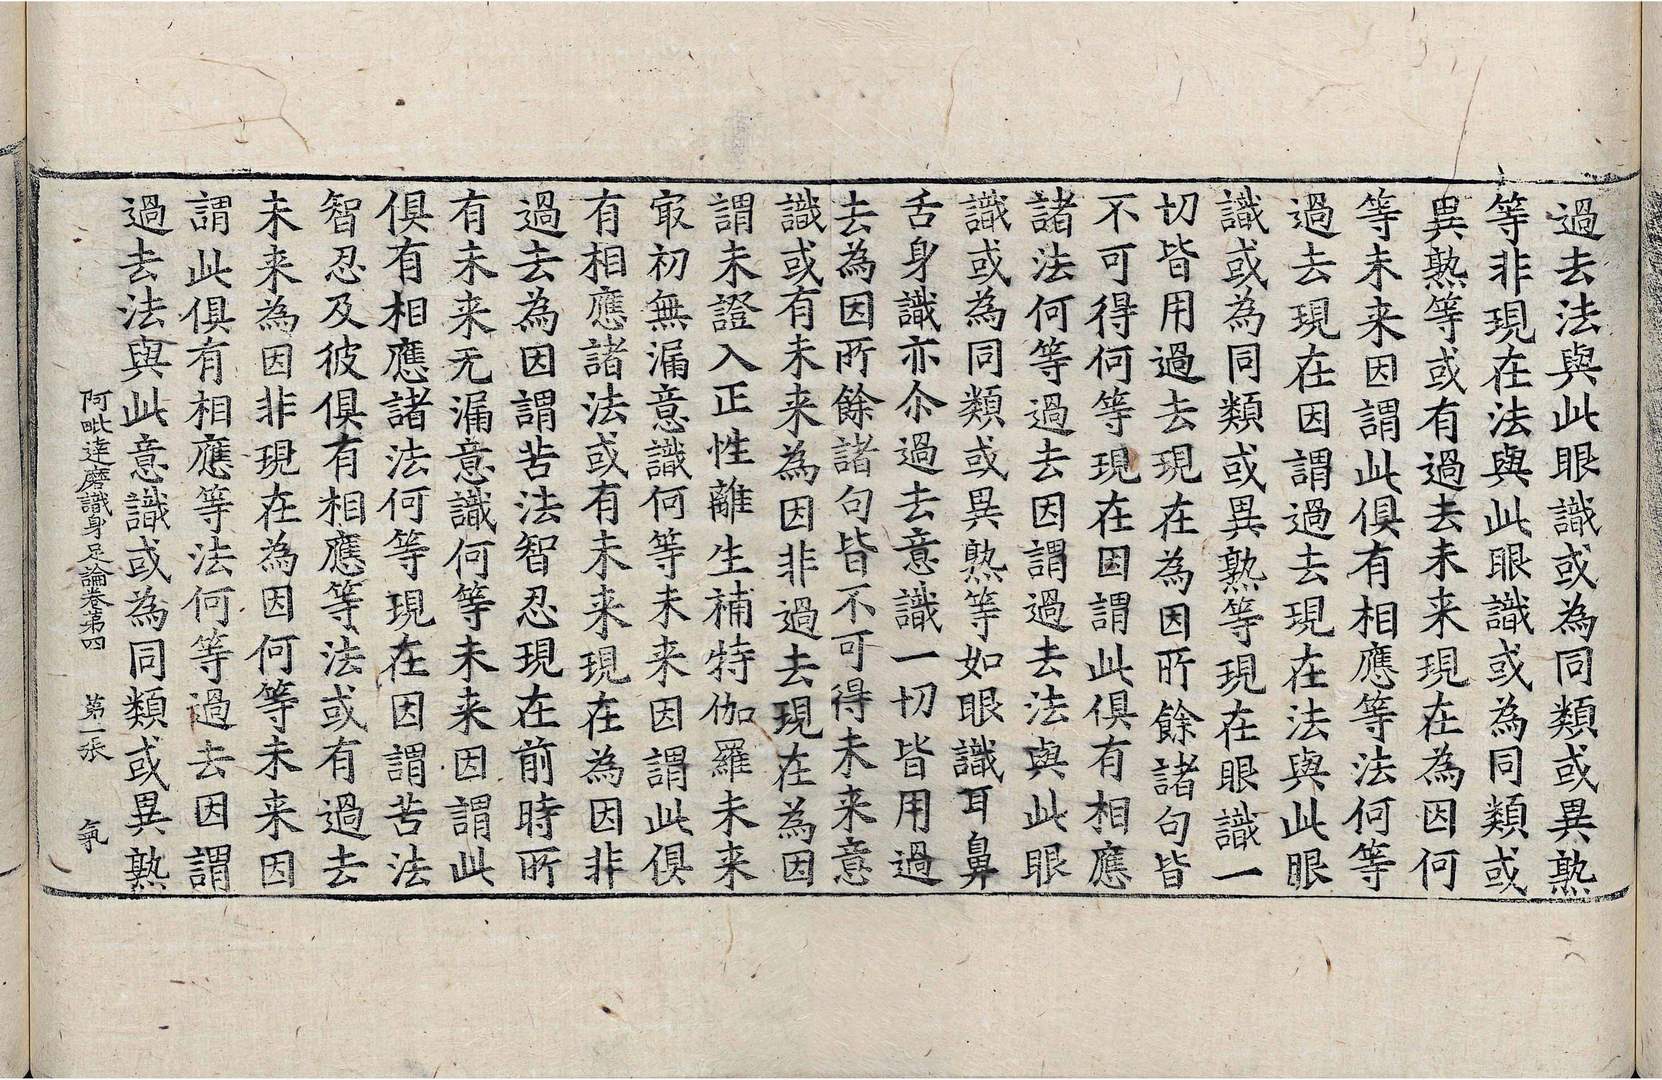 過去法與此眼識或為同類或異熟
等非現在法與此眼識或為同類或
異熟等或有過去未来現在為因何
等未来因謂此俱有相應等法何等
過去現在因謂過去現在法與此眼
識或為同類或異熟等現在眼識一
切皆用過去現在為因所餘諸句皆
不可得何等現在因謂此俱有相應
諸法何等過去因謂過去法與此眼
識或為同類或異熟等如眼識耳鼻
舌身識亦尒過去意識一切皆用過
去為因所餘諸句皆不可得未来意
識或有未来為因非過去現在為因
謂未證入正性離生補特伽羅未来
㝡初無漏意識何等未来因謂此俱
有相應諸法或有未来現在為因非
過去為因謂苦法智忍現在前時所
有未来无漏意識何等未来因謂此
俱有相應諸法何等現在因謂苦法
智忍及彼俱有相應等法或有過去
未来為因非現在為因何等未来因
謂此俱有相應等法何等過去因謂
過去法與此意識或為同類或異熟
阿毗達磨識身足論卷第四 第二張 氣